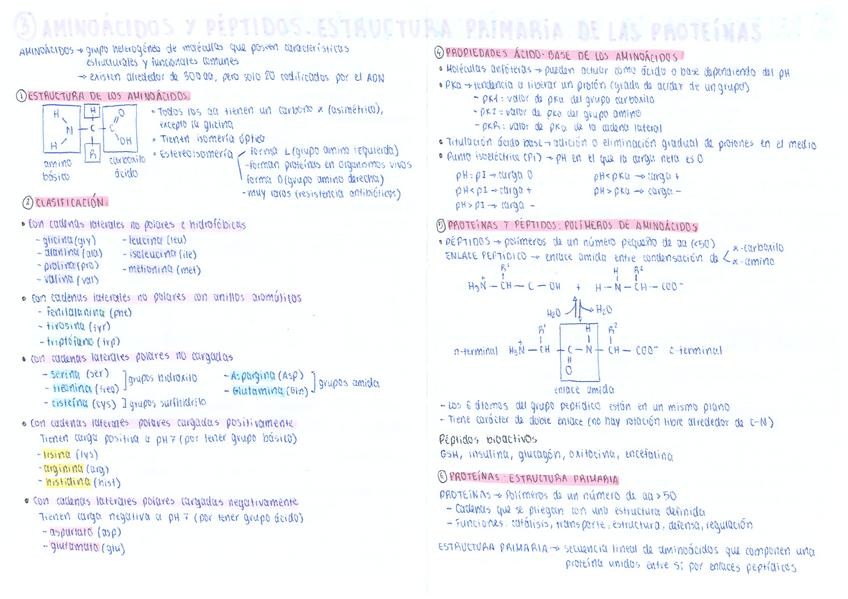 ③ AMINOÁCIDOS Y PÉPTIDOS. ESTRUCTURA PRIMARIA DE LAS PROTEÍNAS
AMINOÁCIDOS → grupo heterogéneo de moléculas que poseen características
estructurales y funcionales comunes
→ existen alrededor de 300 aa, pero solo 20 codificados por el ADN
① ESTRUCTURA DE LOS AMINOÁCIDOS
H H O
N – C – C
H R OH
amino básico
carboxilo ácido
• Todos los aa tienen un carbono α (asimétrico),
excepto la glicina
• Tienen isomería óptica
• Estereoisomería
forma L (grupo amino izquierda)
- forman proteínas en organismos vivos
forma D (grupo amino derecha)
- muy raros (resistencia antibióticos)
② CLASIFICACIÓN
• Con cadenas laterales no polares e hidrofóbicas
- glicina (gly) - leucina (leu)
- alanina (ala) - isoleucina (ile)
- prolina (pro) - metionina (met)
- valina (val)
• Con cadenas laterales no polares con anillos aromáticos
- fenilalanina (phe)
- tirosina (tyr)
- triptófano (trp)
• Con cadenas laterales polares no cargadas
- serina (ser)
- treonina (treo)
] grupos hidroxilo
- cisteína (cys) ] grupos sulfhidrilo
- Aspargina (Asp)
- Glutamina (Gln)
] grupos amida
• Con cadenas laterales polares cargadas positivamente
Tienen carga positiva a pH 7 (por tener grupo básico)
- lisina (lys)
- arginina (arg)
- histidina (hist)
• Con cadenas laterales polares cargadas negativamente
Tienen carga negativa a pH 7 (por tener grupo ácido)
- aspartato (asp)
- glutamato (glu)
④ PROPIEDADES ÁCIDO-BASE DE LOS AMINOÁCIDOS
• Moléculas anfóteras → pueden actuar como ácido o base dependiendo del pH
• pKa → tendencia a liberar un protón (grado de acidez de un grupo)
- pK1: valor de pKa del grupo carboxilo
- pK2: valor de pKa del grupo amino
- pKR: valor de pKa de la cadena lateral
• Titulación ácido base → adición o eliminación gradual de protones en el medio
• Punto isoeléctrico (PI) → pH en el que la carga neta es 0
pH = pI → carga 0 pH < pKa → carga +
pH < pI → carga + pH > pKa → carga -
pH > pI → carga -
⑤ PROTEÍNAS Y PÉPTIDOS: POLÍMEROS DE AMINOÁCIDOS
• PÉPTIDOS → polímeros de un número pequeño de aa (<50)
ENLACE PEPTÍDICO → enlace amida entre condensación de
α-carboxilo
α-amino
R¹ H R²
H₃N – CH – C – OH + H – N – CH – COO⁻
H₂O H₂O
R¹ H R²
n-terminal H₃N – CH – C – N – CH – COO⁻ c-terminal
O
enlace amida
- Los 6 átomos del grupo peptídico están en un mismo plano
- Tiene carácter de doble enlace (no hay rotación libre alrededor de C-N)
Péptidos bioactivos
GSH, insulina, glucagón, oxitocina, encefalina
⑥ PROTEÍNAS: ESTRUCTURA PRIMARIA
PROTEÍNAS → Polímeros de un número de aa > 50
- Cadenas que se pliegan con una estructura definida
- Funciones: catálisis, transporte, estructura, defensa, regulación
ESTRUCTURA PRIMARIA → secuencia lineal de aminoácidos que componen una
proteína unidos entre sí por enlaces peptídicos